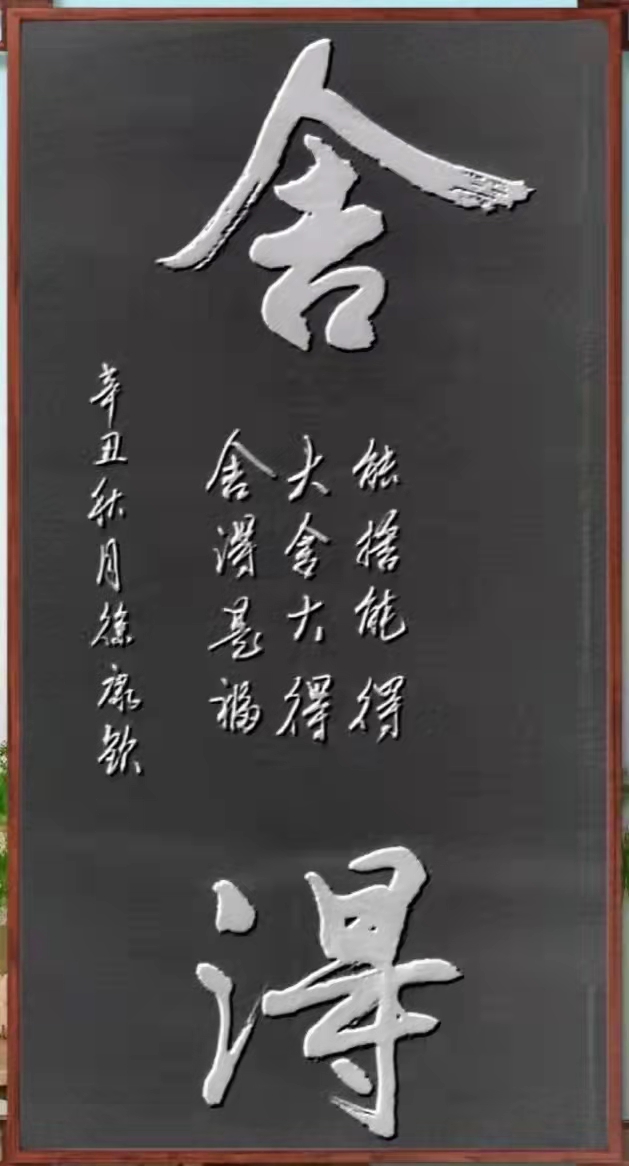 舍
能捨能得
大舍大得
舍得是福
辛丑秋月徐康欽
得